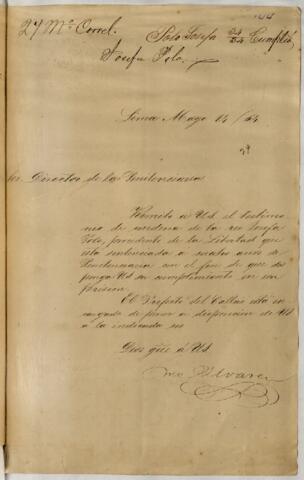 27 Mo Correl. Polo Josefa 34/54 Cumplió
Josefa Polo.
Lima Mayo 14/
Sr. Director de la Penitenciaria
Remito á Ud. el testimo
nio de condena de la reo Josefa
Polo, procedente de la Libertad que
esta sentenciada a cuatro años de
Penitenciaria con el fin de que dis
ponga Ud su cumplimiento en esa
prision.
El Prefecto del Callao está en
cargado de poner a disposicion de Ud
a la indicada reo
Dios gue á Ud.
Alvarez